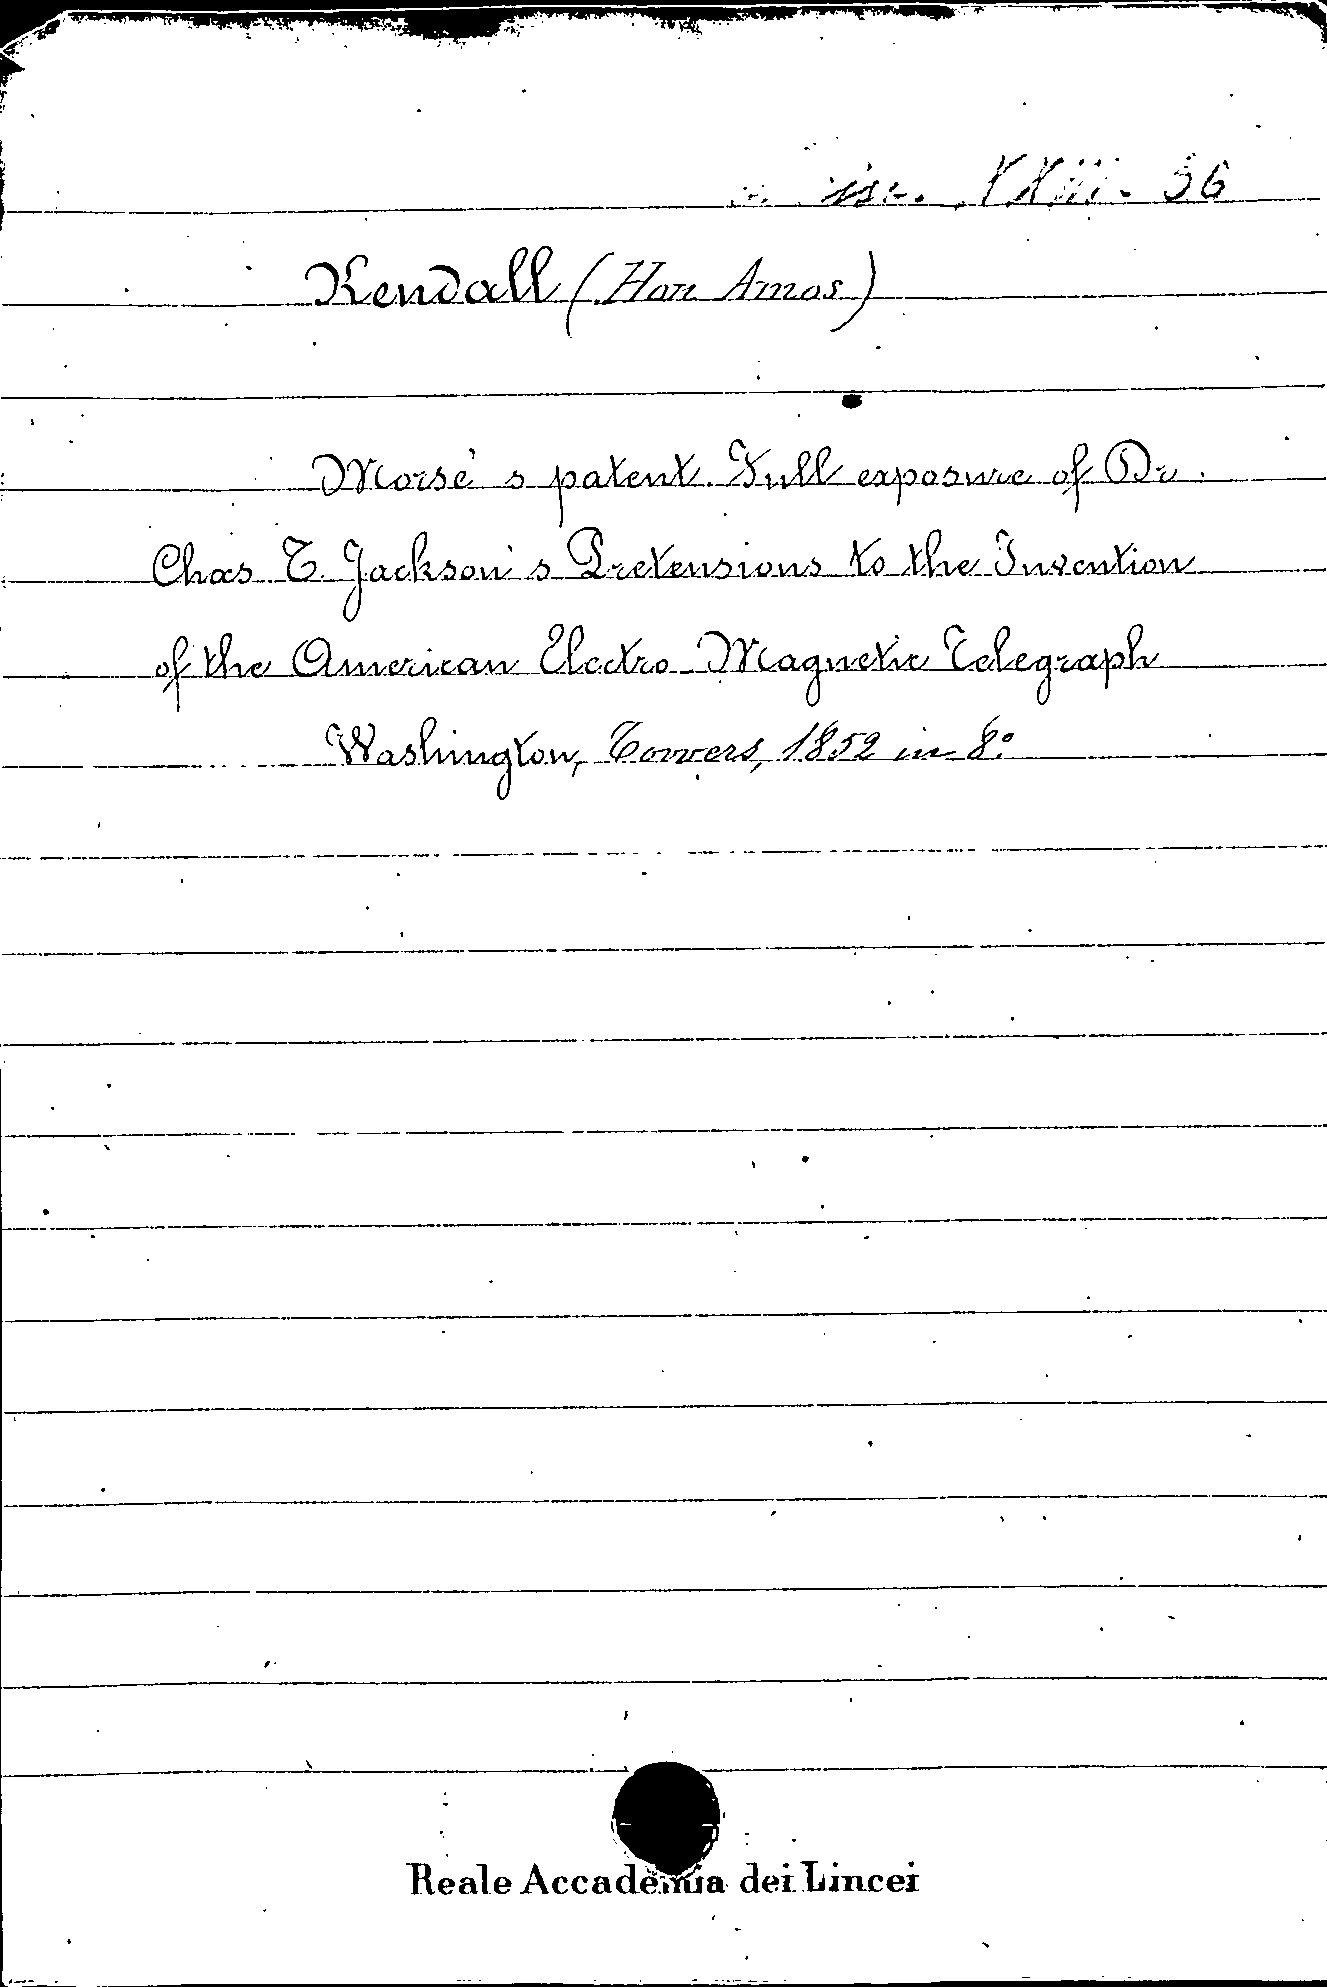 Misc. XXIII. 36
Kendall (Hon Amos)
Morse's patent. Full exposure of Dr.
Chas T. Jackson's Pretensions to the Invention
of the American Electro Magnetic Telegraph
Washington, Towers, 1852 in 8º
Reale Accademia dei Lincei